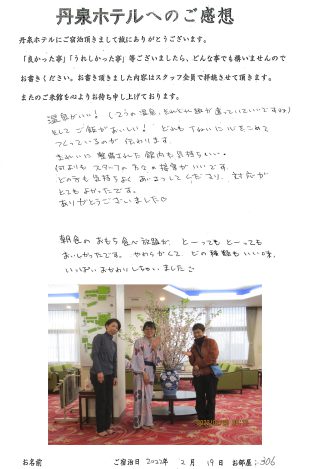 丹泉ホテルへのご感想
丹泉ホテルにご宿泊頂きまして誠にありがとうございます。
「良かった事」「うれしかった事」等ございましたら、どんな事でも構いませんので
お書きください。お書き頂きました内容はスタッフ全員で拝読させて頂きます。
またのご来館を心よりお待ち申し上げております。
温泉がいい！（2つの温泉、それぞれ趣が違っていていいですね）
そして ご飯がおいしい！ どれも ていねいに心をこめて
つくっているのが 伝わります。
きれいに 整備された 館内も 気持ちいい。
何よりも スタッフの方々の 接客が いいです。
どの方も 気持ちよく あいさつして くださり、対応が
とてもよかったです。
ありがとうございました
朝食の おもち食べ放題が、と〜っても と〜っても
おいしかったです。やわらかくて どの種類もいい味。
いっぱい おかわりしちゃいました
お名前 ご宿泊日 2022年 2月 19日 お部屋: 306